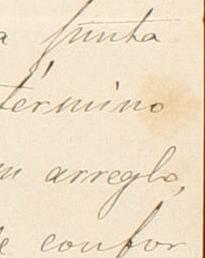 a junta
término
un arreglo,
de confor